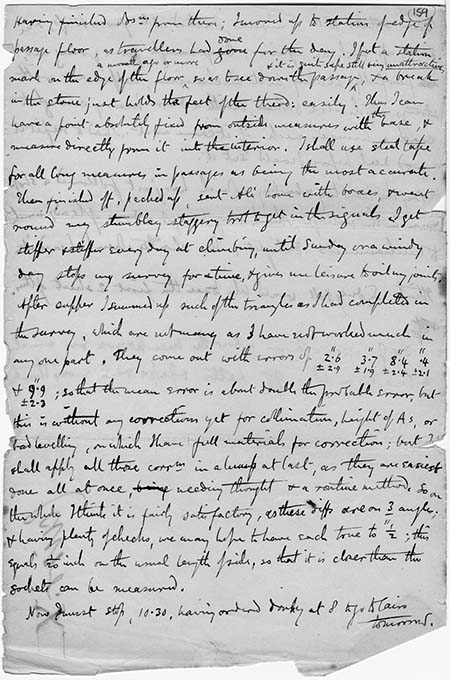 159
Having finished Obs ns from there, I moved up to station ; edge of
passage floor, as travellers had gone done for the day. I put a station
a month ago or more & it is quite safe still being unattractive,
mark on the edge of the floor, & a break
in the stone just holds the feet of the theod: easily. Thus I can
have a point absolutely fixed from outside measures with the base, &
measure directly from it into the interior. I shall use steel tape
for all long measures in passages as being the most accurate.
Then finished off. packed up, sent Ali home with boxes, & went
round my stumbley staggery trot to get in the signals. I get
stiffer & stiffer every day at climbing, until Sunday or a windy
day stops my survey for a time, & gives me leisure to oil my joints.
After supper I summed up such of the triangles as I had completed in
the survey, which are not many as I have not worked much in
any one part. They come out with errors of 2"·6 3"·7 8"·4 "·4
±2·9 ±1·9 ±2·4 ±2·1
& 9"·9 ; so that the mean error is about double the probable error, but
±2·3
this is without any corrections yet for collimation, height of As, or
bad levelling, on which I have full materials for correction; but I
shall apply all those corrns in a lump at last, as they are easiest
done all at once, being needing thought & a routine method. So on
the whole I think it is fairly satisfactory, as these diffs are on 3 angles;
& having plenty of checks, we may hope to have each true to 1"/2 ; this
equals inch on the usual length of side, so that it is closer than the
sockets can be measured.
Now I must stop, 10·30, having ordered donkey at 8 to go to Cairo
tomorrow.